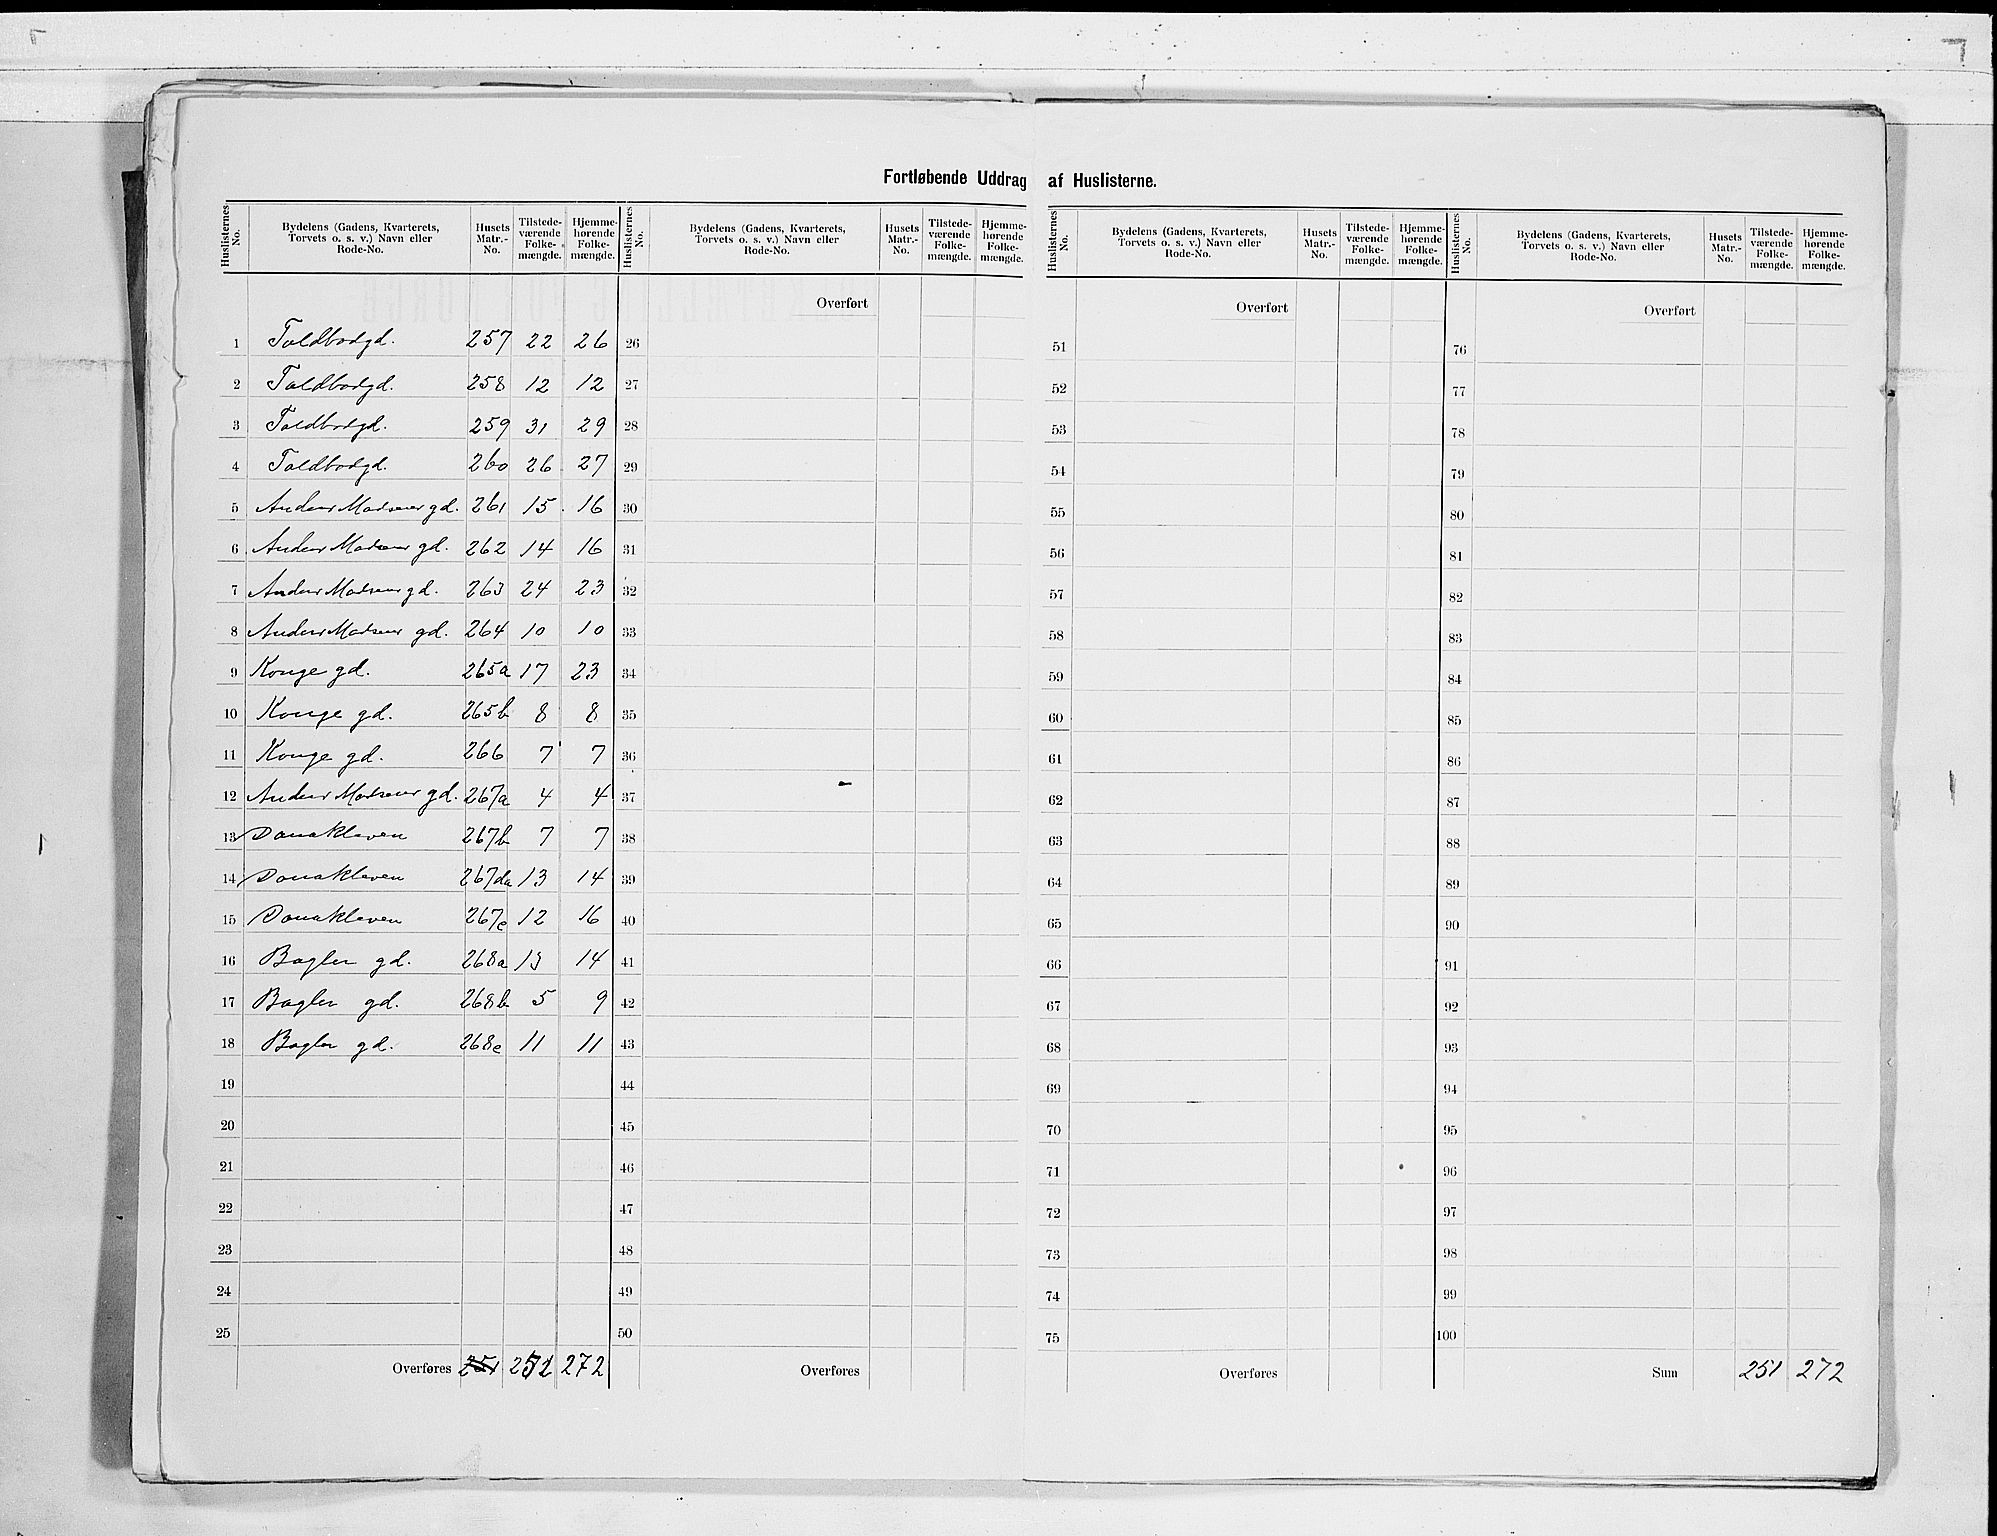 Fortløbende Uddrag af Huslisterne.
Huslisternes No. Bydelens (Gadens, Kvarterets, Torvets o. s. v.) Navn eller Rode-No. Husets Matr.-No. Tilstedeværende Folkemængde. Hjemmehørende Folkemængde.
1 Toldbodgd. 257 22 26
2 Toldbodgd. 258 12 12
3 Toldbodgd. 259 31 29
4 Toldbodgd. 260 26 27
5 Anders Madsens gd. 261 15 16
6 Anders Madsens gd. 262 14 16
7 Anders Madsens gd. 263 24 23
8 Anders Madsens gd. 264 10 10
9 Konge gd. 265a 17 23
10 Konge gd. 265b 8 8
11 Konge gd. 266 7 7
12 Anders Madsens gd. 267a 4 4
13 Donakleven 267b 7 7
14 Donakleven 267da 13 14
15 Donakleven 267e 12 16
16 Bagler gd. 268a 13 14
17 Bagler gd. 268b 5 9
18 Bagler gd. 268c 11 11
19
20
21
22
23
24
25
Overføres 251 272
Huslisternes No. Bydelens (Gadens, Kvarterets, Torvets o. s. v.) Navn eller Rode-No. Husets Matr.-No. Tilstedeværende Folkemængde. Hjemmehørende Folkemængde.
Overført
26
27
28
29
30
31
32
33
34
35
36
37
38
39
40
41
42
43
44
45
46
47
48
49
50
Overføres
Huslisternes No. Bydelens (Gadens, Kvarterets, Torvets o. s. v.) Navn eller Rode-No. Husets Matr.-No. Tilstedeværende Folkemængde. Hjemmehørende Folkemængde.
Overført
51
52
53
54
55
56
57
58
59
60
61
62
63
64
65
66
67
68
69
70
71
72
73
74
75
Overføres
Huslisternes No. Bydelens (Gadens, Kvarterets, Torvets o. s. v.) Navn eller Rode-No. Husets Matr.-No. Tilstedeværende Folkemængde. Hjemmehørende Folkemængde.
Overført
76
77
78
79
80
81
82
83
84
85
86
87
88
89
90
91
92
93
94
95
96
97
98
99
100
Sum 251 272